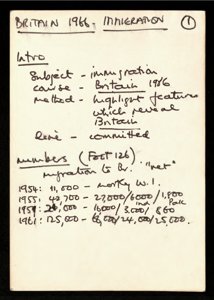 BRITAIN 1966 - IMMIGRATION ①
Intro
Subject - immigration
cause - Britain 1966
method - highlight features
which reveal
Britain
René - committed
numbers (Foot 126)
migration to Br. "net"
1954: 11,000 - mostly W.I.
1955: 42,700 - 27,000/6000/1,800
Ind Pak
1959: 21,000 - 16,000/3,000/860
1961: 125,000 - 66,000/24,000/25,000.